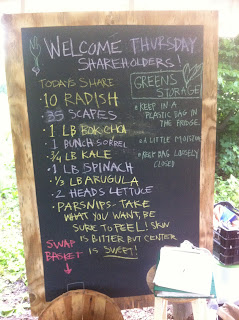 WELCOME THURSDAY
SHAREHOLDERS!
TODAYS SHARE
• 10 RADISH
• 35 SCAPES
• 1 LB BOK CHOI
• 1 BUNCH SORREL
• 3/4 LB KALE
• 1 LB SPINACH
• 1/3 LB ARUGULA
• 2 HEADS LETTUCE
• PARSNIPS - TAKE
WHAT YOU WANT, BE
SURE TO PEEL! SKIN
IS BITTER BUT CENTER
IS SWEET!
GREENS
STORAGE
• KEEP IN A
PLASTIC BAG IN
THE FRIDGE.
• A LITTLE MOISTURE
• KEEP BAG LOOSELY
CLOSED
SWAP
BASKET